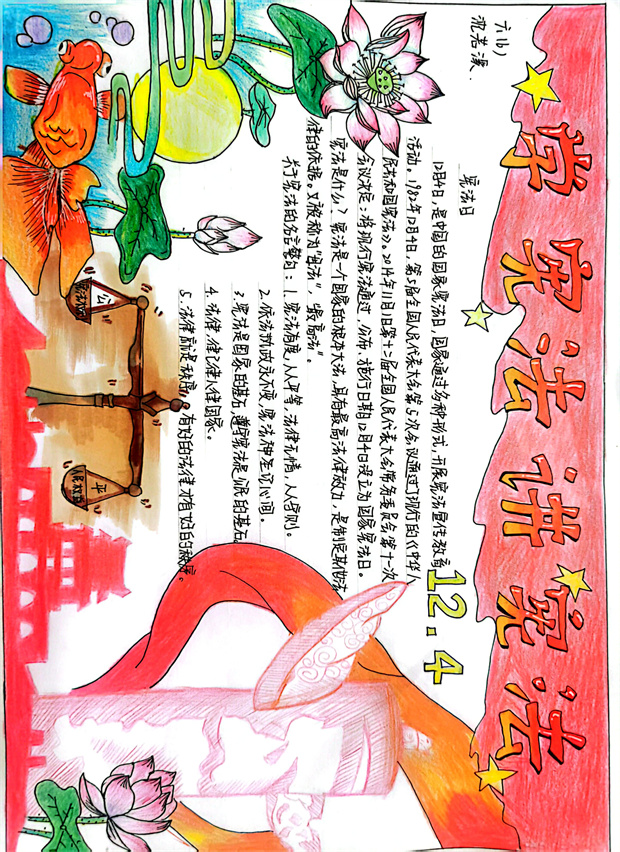 学宪法讲宪法
六(16)
沈若溪
12.4
宪法日
12月4日,是中国的国家宪法日,国家通过多种形式,开展宪法宣传教育
活动。1982年12月4日,第5届全国人民代表大会第5次会议通过了现行的《中华人
民共和国宪法》。2014年11月1日第十二届全国人民代表大会常务委员会第十一次
会议决定:将现行宪法通过、公布、施行日期12月4日设立为国家宪法日。
宪法是什么?宪法是一个国家的根本大法,具有最高法律效力,是制定其他法
律的依据。又被称为“母法”、“最高法”。
关于宪法的名言警句:1.宪法有度,人人平等,法律无情,人人守则。
2.依法执政永不变,宪法神圣记心间。
3.宪法是国家的基石,遵守宪法是公民的基石
4.法律,律己律人律国家。
5.法律就是秩序,有好的法律才有好的秩序。
公
平